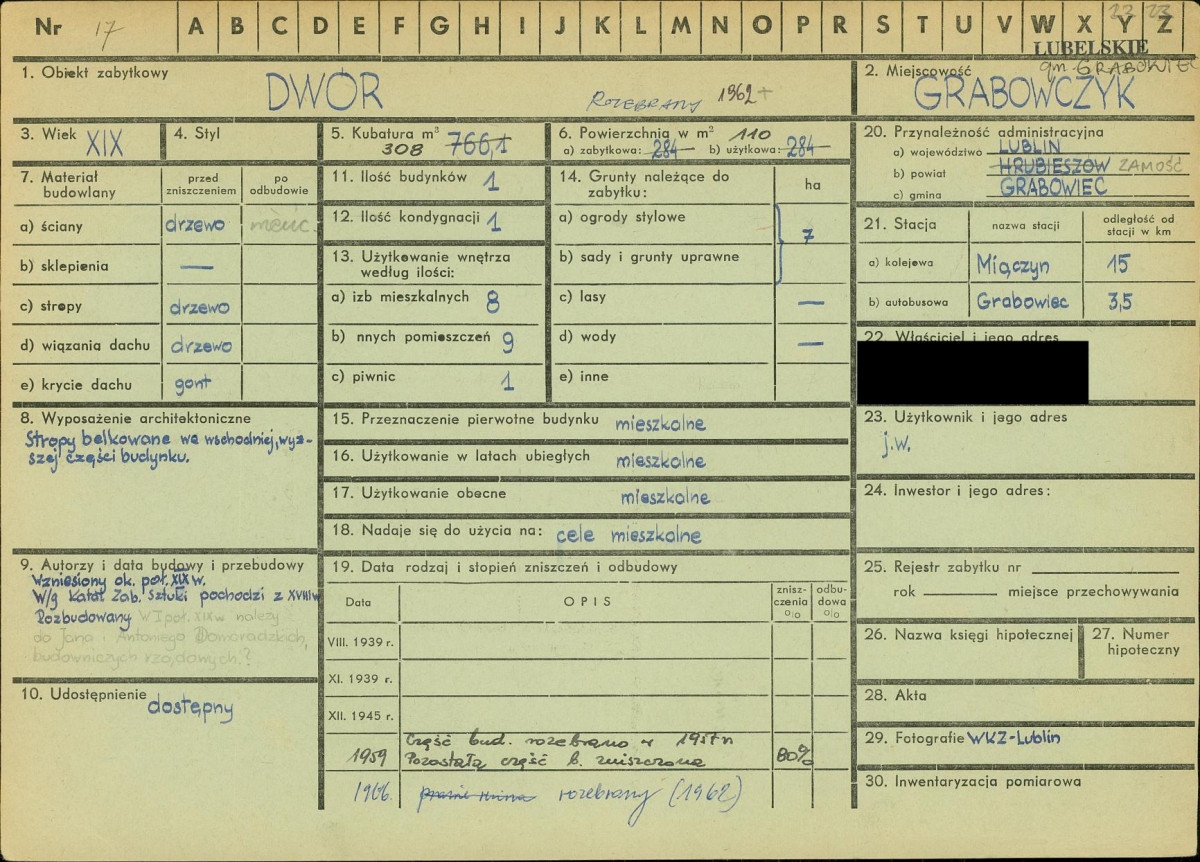 Nr 17 A B C D E F G H I J K L M N O P R S T U V W X Y Z
23 23
LUBELSKIE
gm. GRABOWIEC
1. Obiekt zabytkowy
DWÓR
ROZEBRANY 1962 +
2. Miejscowość
GRABOWCZYK
3. Wiek XIX
4. Styl
5. Kubatura m³ 766,1
308
6. Powierzchnia w m² 110
a) zabytkowa: 284 b) użytkowa: 284
20. Przynależność administracyjna
a) województwo LUBLIN
b) powiat HRUBIESZÓW ZAMOŚĆ
c) gmina GRABOWIEC
7. Materiał budowlany
przed zniszczeniem
po odbudowie
a) ściany drzewo
b) sklepienia —
c) stropy drzewo
d) wiązania dachu drzewo
e) krycie dachu gont
11. Ilość budynków 1
12. Ilość kondygnacji 1
13. Użytkowanie wnętrza
według ilości:
a) izb mieszkalnych 8
b) nnych pomieszczeń 9
c) piwnic 1
14. Grunty należące do
zabytku:
ha
a) ogrody stylowe
7
b) sady i grunty uprawne
c) lasy —
d) wody —
e) inne
21. Stacja
nazwa stacji
odległość od
stacji w km
a) kolejowa Miączyn 15
b) autobusowa Grabowiec 3,5
22. Właściciel i jego adres
8. Wyposażenie architektoniczne
Stropy belkowane we wschodniej, wyż-
szej części budynku.
15. Przeznaczenie pierwotne budynku mieszkalne
16. Użytkowanie w latach ubiegłych mieszkalne
17. Użytkowanie obecne mieszkalne
18. Nadaje się do użycia na: cele mieszkalne
23. Użytkownik i jego adres
j.w.
24. Inwestor i jego adres:
9. Autorzy i data budowy i przebudowy
Wzniesiony ok. poł. XIX w.
W/g Katal. Zab. Sztuki pochodzi z XVIII w
Rozbudowany W I poł. XIX w należy
do Jana i Antoniego Domoradzkich,
budowniczych rządowych.?
10. Udostępnienie dostępny
19. Data rodzaj i stopień zniszczeń i odbudowy
Data
OPIS
znisz-
czenia
%
odbu-
dowa
%
VIII. 1939 r.
XI. 1939 r.
XII. 1945 r.
Część bud. rozebrano w 1957 r
1959 Pozostała część b. zniszczona 80%
1966. rozebrany (1962)
25. Rejestr zabytku nr
rok miejsce przechowywania
26. Nazwa księgi hipotecznej
27. Numer
hipoteczny
28. Akta
29. Fotografie WKZ-Lublin
30. Inwentaryzacja pomiarowa